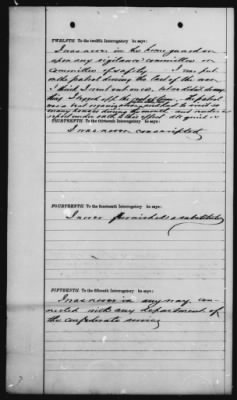 TWELFTH To the twelfth Interrogatory he says:
I was never in the home guard or
upon any vigilance committee or
committee of safety. I was put
on the patrol during the last of the war
I think I went out once,
I was never conscripted
THIRTEENTH To the thirteenth Interrogatory he says:
FOURTEENTH To the fourteenth Interrogatory he says:
I never furnished a substitute
FIFTEENTH To the fifteenth Interrogatory he says:
I was never in any way con-
nected with any department of
the confederate service